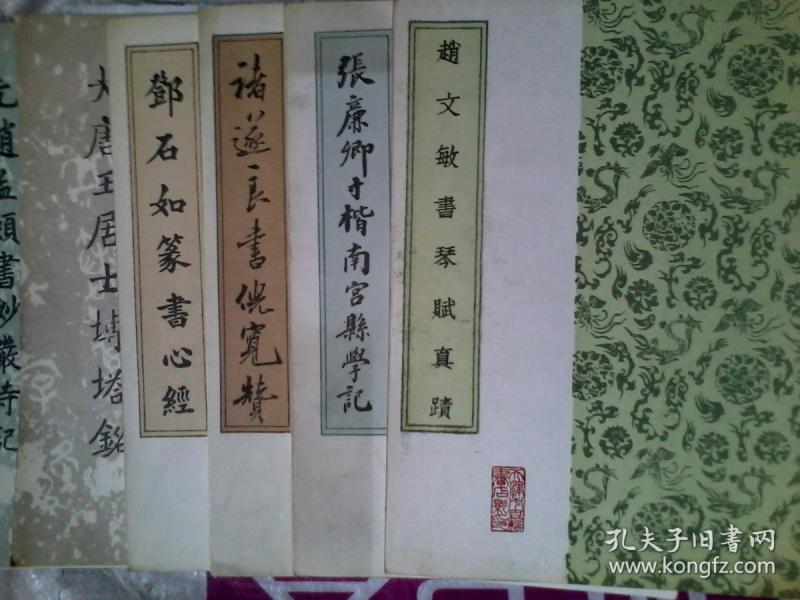 趙文敏書琴賦真蹟
張廉卿寸楷南宮縣學記
褚遂良書倪寬贊
鄧石如篆書心經
大唐王居士塼塔銘
元趙孟頫書妙嚴寺記
孔夫子旧书网
www.kongfz.com